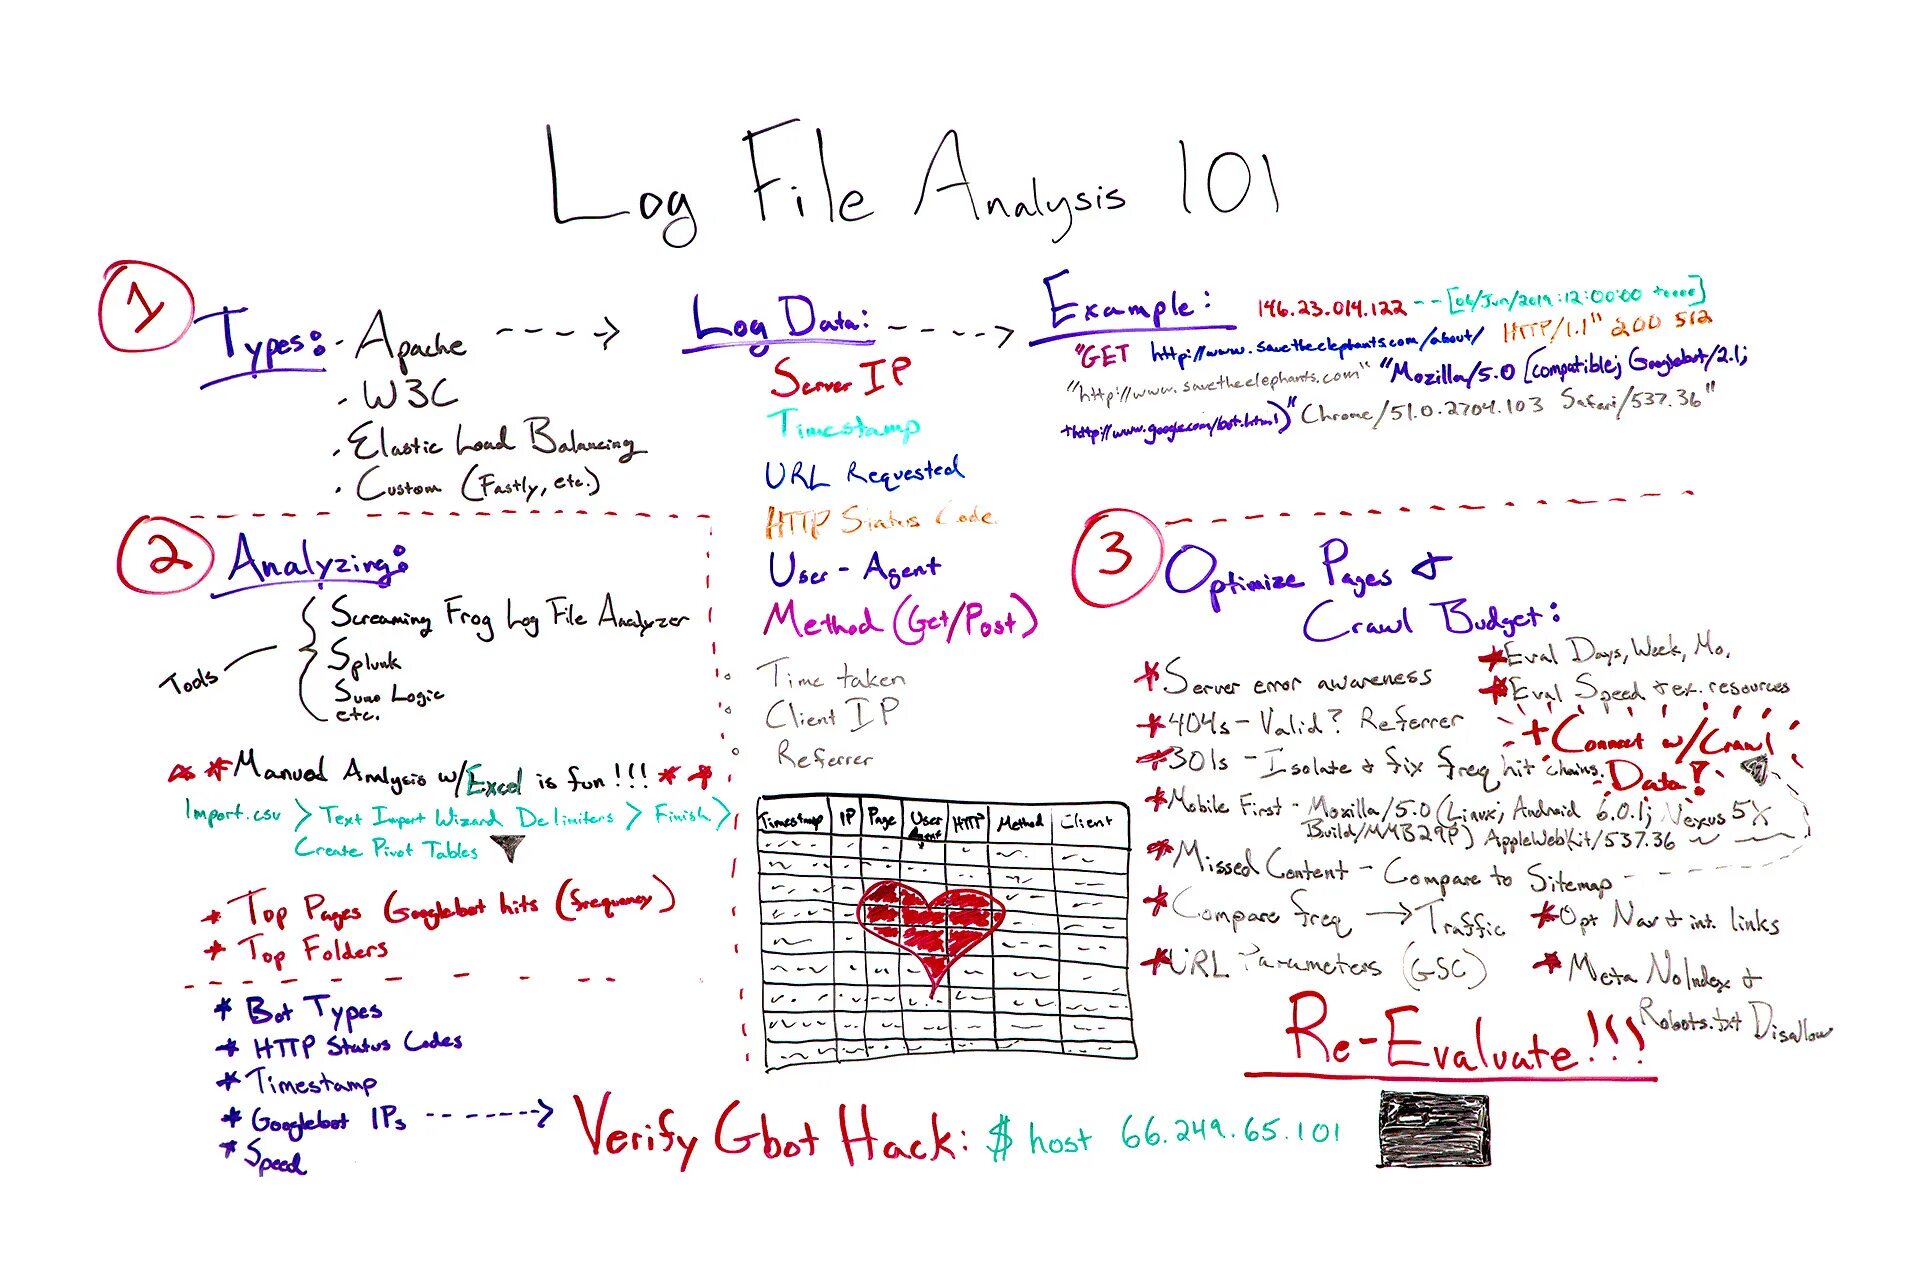 Log File Analysis 101
1
Types:
· Apache
· W3C
· Elastic Load Balancing
· Custom (Fastly, etc.)
Log Data:
Server IP
Timestamp
URL Requested
HTTP Status Code
User-Agent
Method (Get/Post)
Time taken
Client IP
Referrer
Example:
146.23.014.122 -- [06/Jun/2019:12:00:00 +0000]
"GET http://www.savetheelephants.com/about/ HTTP/1.1" 200 512
"http://www.savetheelephants.com" "Mozilla/5.0 [compatible; Googlebot/2.1;
+http://www.google.com/bot.html)" Chrome/51.0.2704.103 Safari/537.36"
2
Analyzing:
Tools
Screaming Frog Log File Analyzer
Splunk
Sumo Logic
etc.
** Manual Analysis w/Excel is fun!!! **
Import.csv > Text Import Wizard Delimiters > Finish >
Create Pivot Tables
* Top Pages (Googlebot hits (frequency)
* Top Folders
* Bot Types
* HTTP Status Codes
* Timestamp
* Googlebot IPs
* Speed
Timestamp IP Page User Agent HTTP Method Client
Verify Gbot Hack: $ host 66.249.65.101
3
Optimize Pages +
Crawl Budget:
* Server error awareness
* 404s - Valid? Referrer
* 301s - Isolate + fix freq hit chains.
* Mobile First - Mozilla/5.0 (Linux; Android 6.0.1; Nexus 5X
Build/MMB29P) AppleWebKit/537.36
* Missed Content - Compare to Sitemap
* Compare freq → Traffic
* URL Parameters (GSC)
* Eval Days, Week, Mo.
* Eval Speed + ex. resources
+ Connect w/Crawl
Data!
* Opt Nav + int. links
* Meta NoIndex +
Robots.txt Disallow
Re-Evaluate!!!